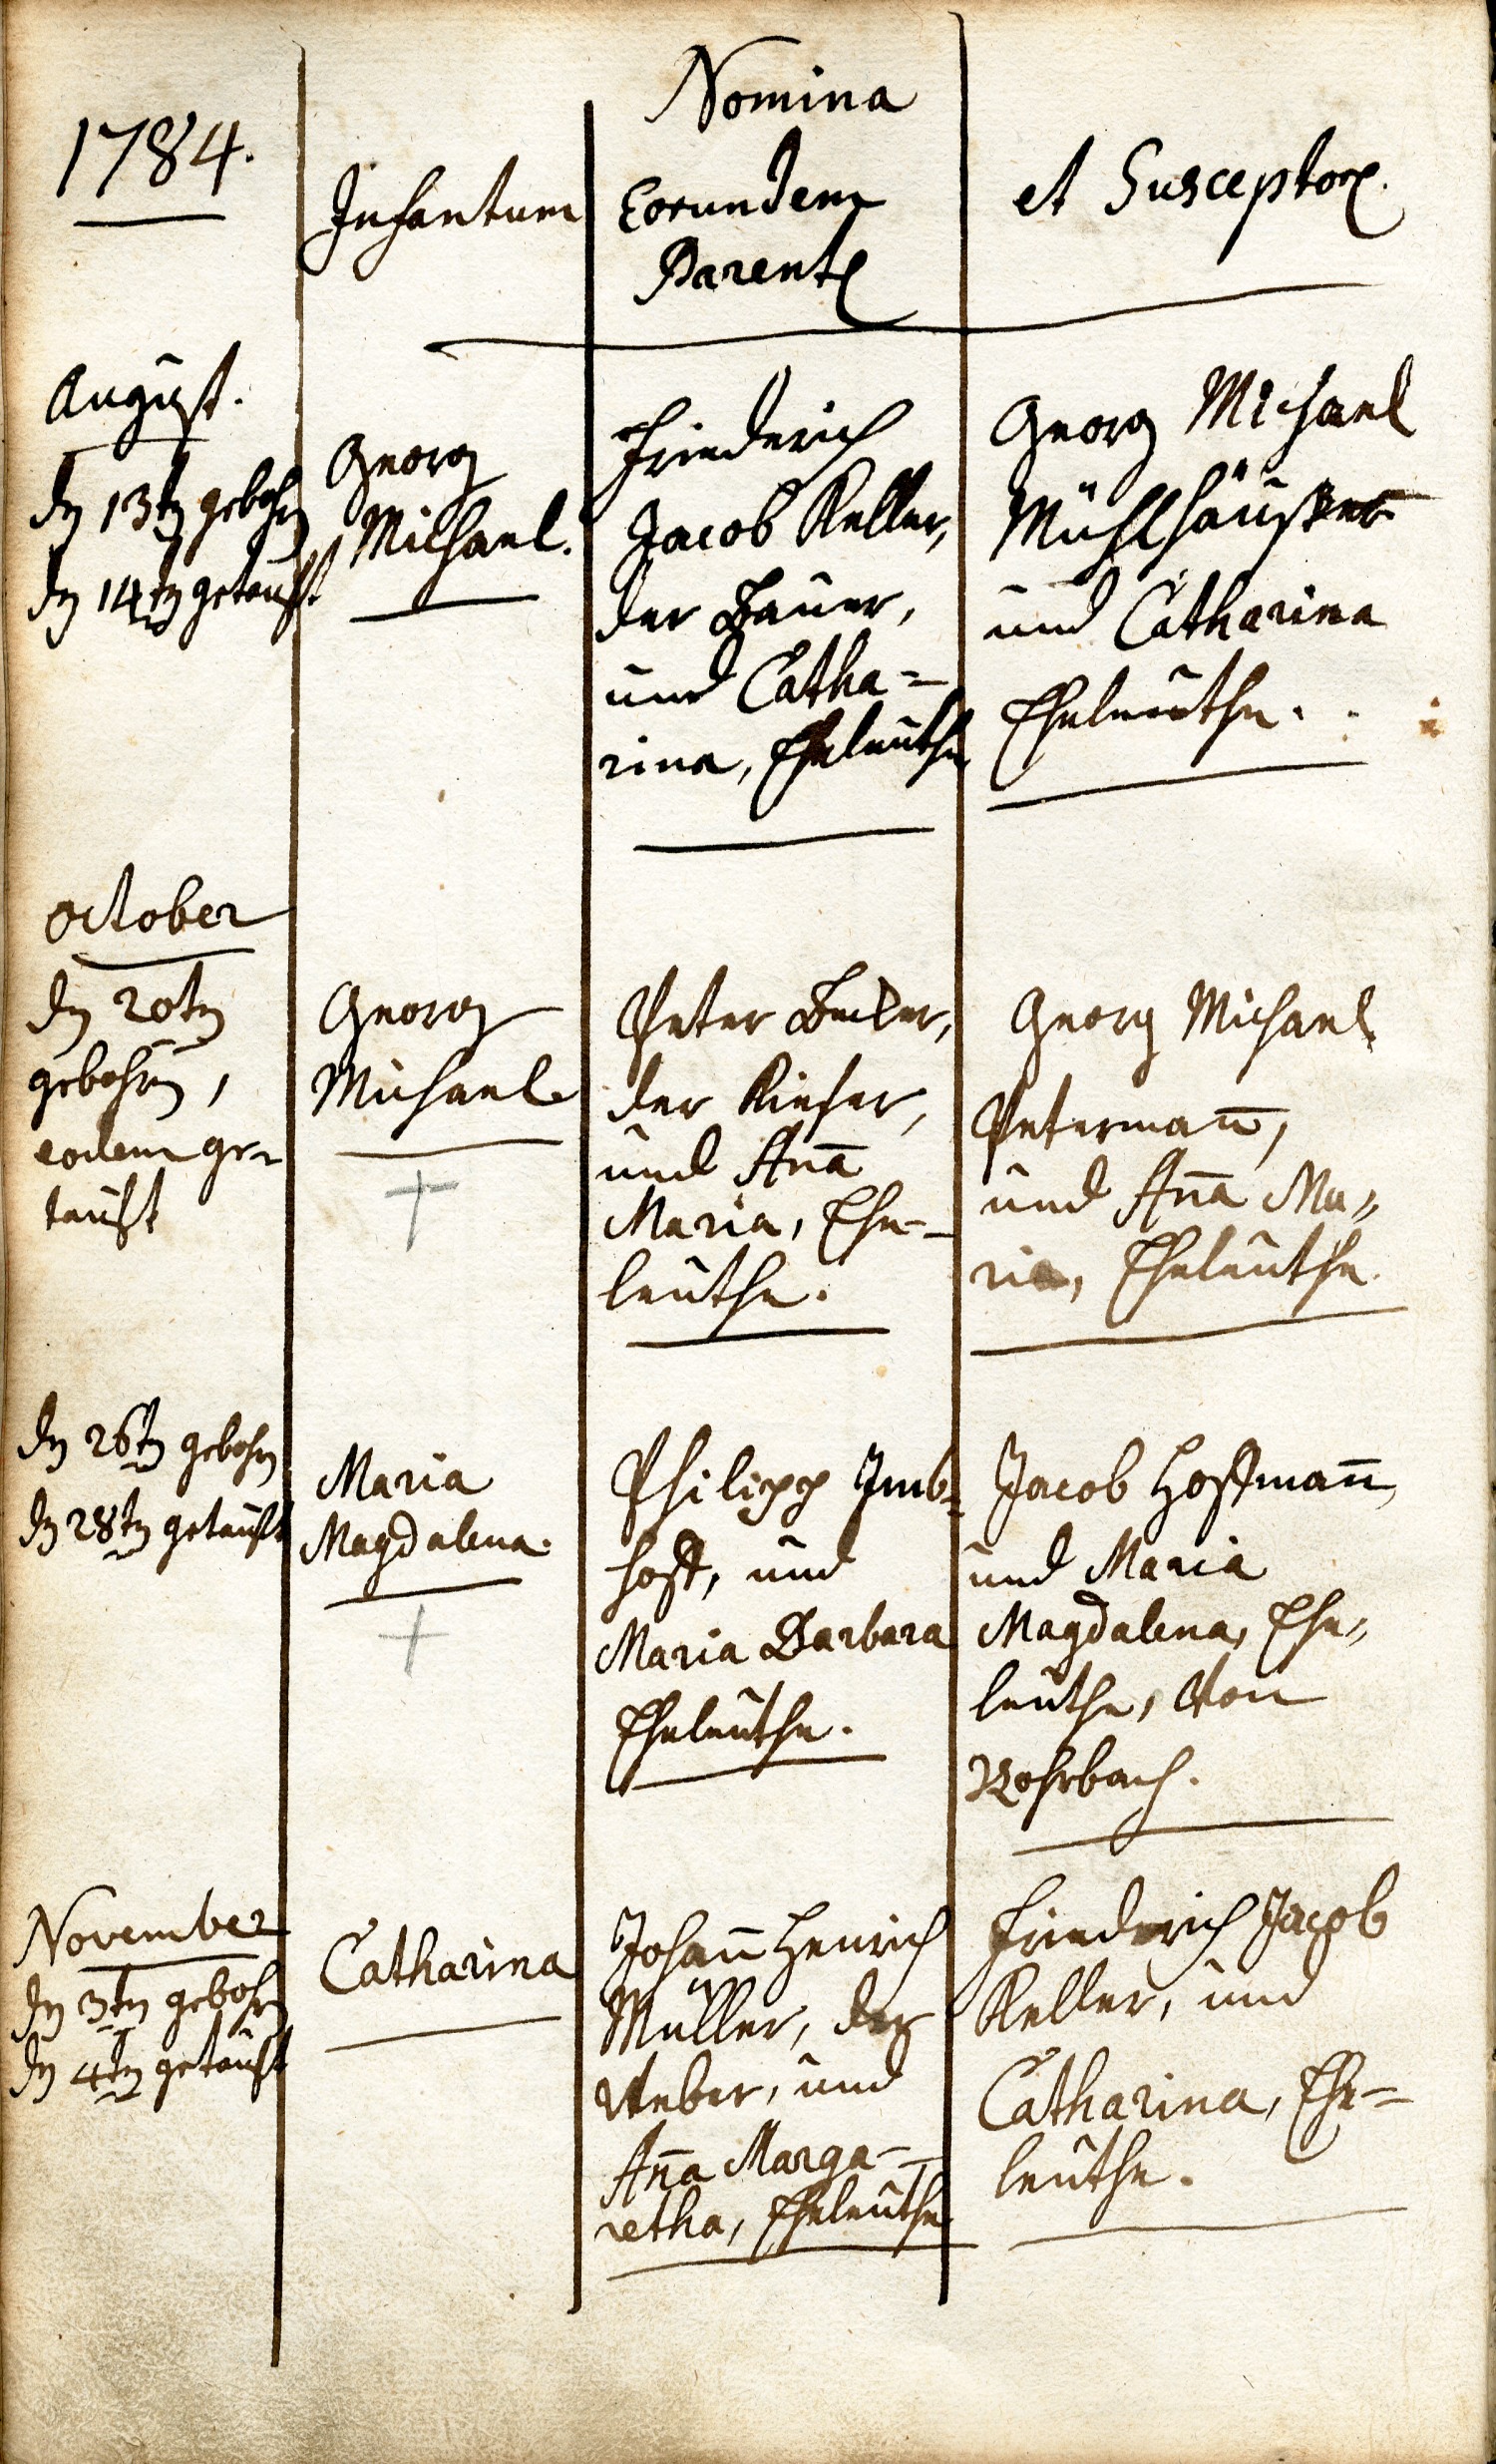 Nomina
1784.
Infantum
Eorundem
Parent
et Susceptor.
August.
dn 13tn gebohrn
dn 14tn getauft
Georg
Michael.
Friederich
Jacob Keller,
der Bauer,
und Catha=
rina, Eheleuthe
Georg Michael
Mühlhäuser
und Catharina
Eheleuthe.
October
dn 20tn
gebohrn,
eodem ge-
tauft
Georg
Michael
+
Peter Becker,
der Kiefer,
und Aña
Maria, Ehe-
leuthe.
Georg Michael
Petermañ,
und Aña Ma„
ria, Eheleuthe.
dn 26tn gebohrn
dn 28tn getauft
Maria
Magdalena.
+
Philipp Imb=
hoff, und
Maria Barbara
Eheleuthe.
Jacob Hoffmañ,
und Maria
Magdalena, Ehe„
leuthe, von
Rohrbach.
November
dn 3tn gebohrn
dn 4tn getauft
Catharina
Johañ Henrich
Müller, der
Weber, und
Aña Marga-
retha, Eheleuthe
Friederich Jacob
Keller, und
Catharina, Ehe=
leuthe.